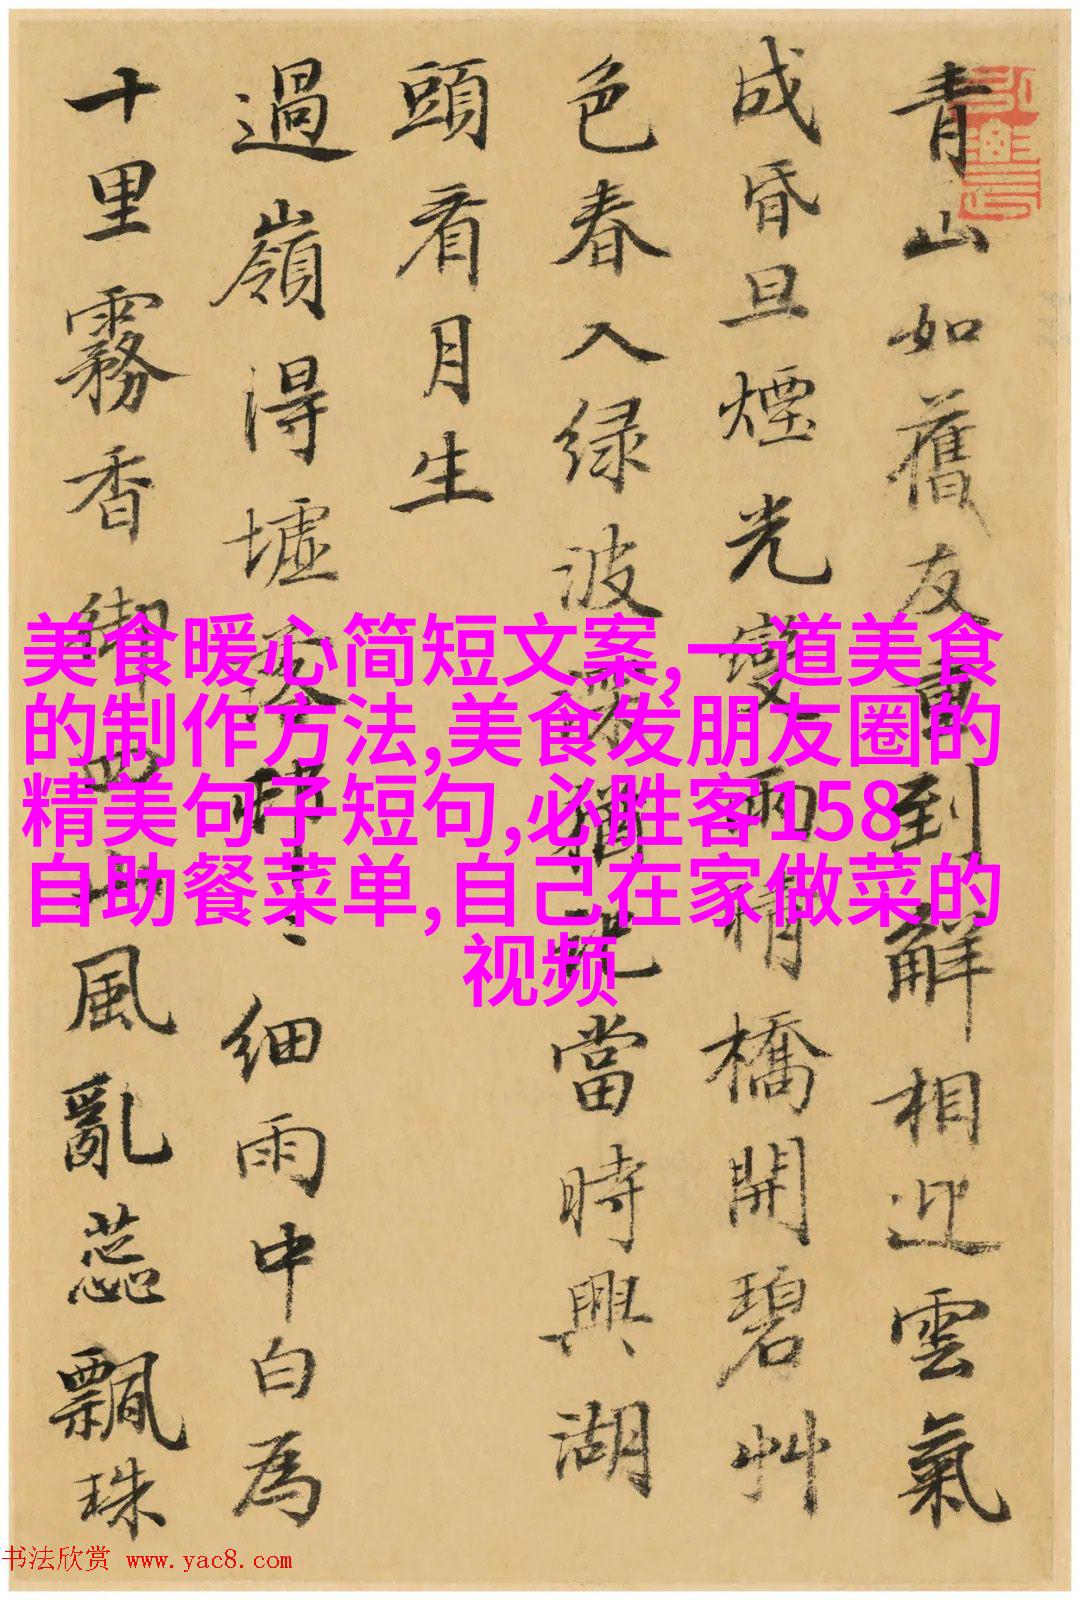 青山如舊友重到解相迎雲氣
成昏旦煙光變雨晴橋開碧艸
色春入绿波猶當時興湖
頭看月生
過嶺得墟細雨中白為
十里霧香風亂蕊飄珠
美食暖心简短文案,一道美食
的制作方法,美食发朋友圈的
精美句子短句,必胜客158
自助餐菜单,自己在家做菜的
视频
书法欣赏 www.yac8.com